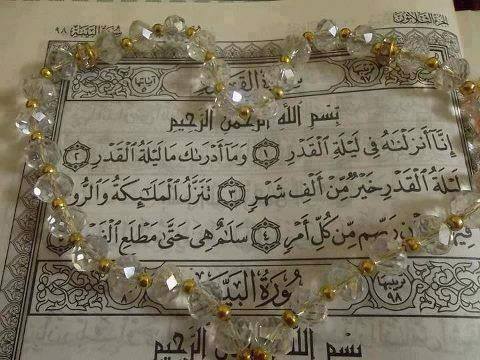 الجزء الثلاثون
سورة البينة ٩٨
سورة القدر
بِسْمِ اللَّهِ الرَّحْمَٰنِ الرَّحِيمِ
إِنَّا أَنزَلْنَٰهُ فِي لَيْلَةِ ٱلْقَدْرِ ١ وَمَا أَدْرَىٰكَ مَا لَيْلَةُ ٱلْقَدْرِ ٢
لَيْلَةُ ٱلْقَدْرِ خَيْرٌ مِّنْ أَلْفِ شَهْرٍ ٣ تَنَزَّلُ ٱلْمَلَٰٓئِكَةُ وَٱلرُّو
فِيهَا رَبِّهِم مِّن كُلِّ أَمْرٍ ٤ سَلَٰمٌ هِيَ حَتَّىٰ مَطْلَعِ
ترتيبها ٩٨
سُورَةُ ٱلْبَيِّ
٨
بِسْمِ اللَّهِ الرَّحْمَٰنِ الرَّحِيمِ